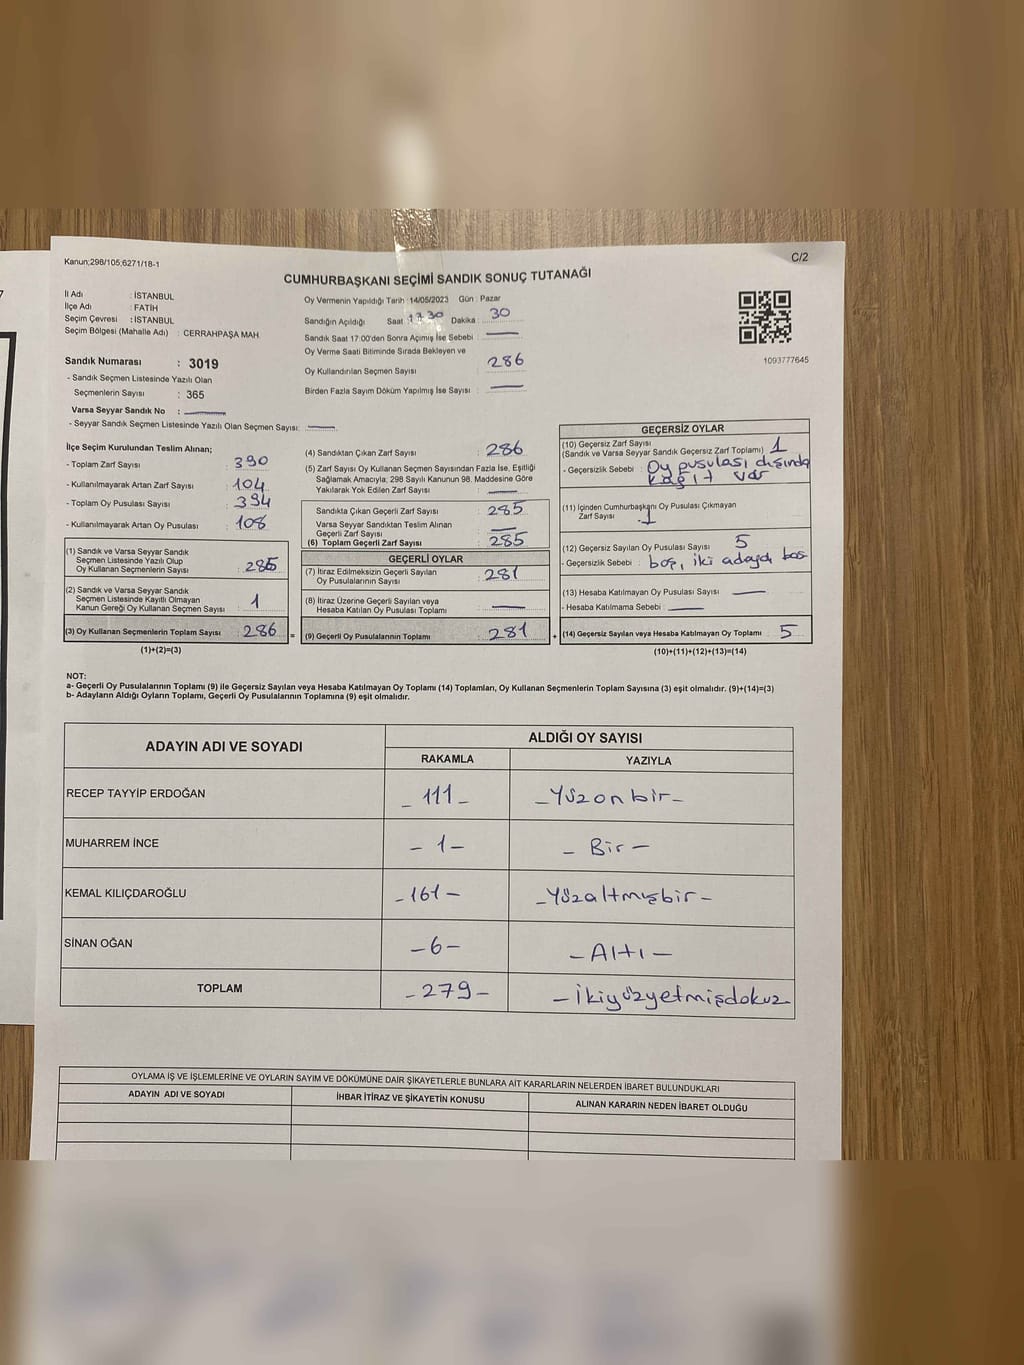 Kanun;298/105,6271/18-1
C/2
CUMHURBAŞKANI SEÇİMİ SANDIK SONUÇ TUTANAĞI
İl Adı : İSTANBUL
İlçe Adı : FATİH
Seçim Çevresi : İSTANBUL
Seçim Bölgesi (Mahalle Adı) : CERRAHPAŞA MAH.
Sandık Numarası : 3019
- Sandık Seçmen Listesinde Yazılı Olan
Seçmenlerin Sayısı : 365
Varsa Seyyar Sandık No :
- Seyyar Sandık Seçmen Listesinde Yazılı Olan Seçmen Sayısı:
Oy Vermenin Yapıldığı Tarih : 14/05/2023 Gün : Pazar
Sandığın Açıldığı Saat : Dakika : 30
Sandık Saat 17:00'den Sonra Açımış İse Sebebi :
Oy Verme Saati Bitiminde Sırada Bekleyen ve
Oy Kullandırılan Seçmen Sayısı : 286
Birden Fazla Sayım Döküm Yapılmış İse Sayısı :
1093777645
İlçe Seçim Kurulundan Teslim Alınan;
- Toplam Zarf Sayısı : 390
- Kullanılmayarak Artan Zarf Sayısı : 104
- Toplam Oy Pusulası Sayısı : 394
- Kullanılmayarak Artan Oy Pusulası : 108
(1) Sandık ve Varsa Seyyar Sandık
Seçmen Listesinde Yazılı Olup
Oy Kullanan Seçmenlerin Sayısı : 285
(2) Sandık ve Varsa Seyyar Sandık
Seçmen Listesinde Kayıtlı Olmayan
Kanun Gereği Oy Kullanan Seçmen Sayısı : 1
(3) Oy Kullanan Seçmenlerin Toplam Sayısı : 286 =
(1)+(2)=(3)
(4) Sandıktan Çıkan Zarf Sayısı : 286
(5) Zarf Sayısı Oy Kullanan Seçmen Sayısından Fazla İse, Eşitliği
Sağlamak Amacıyla; 298 Sayılı Kanunun 98. Maddesine Göre
Yakılarak Yok Edilen Zarf Sayısı :
Sandıkta Çıkan Geçerli Zarf Sayısı : 285
Varsa Seyyar Sandıktan Teslim Alınan
Geçerli Zarf Sayısı :
(6) Toplam Geçerli Zarf Sayısı : 285
GEÇERLİ OYLAR
(7) İtiraz Edilmeksizin Geçerli Sayılan
Oy Pusulalarının Sayısı : 281
(8) İtiraz Üzerine Geçerli Sayılan veya
Hesaba Katılan Oy Pusulası Toplamı :
(9) Geçerli Oy Pusulalarının Toplamı : 281 +
GEÇERSİZ OYLAR
(10) Geçersiz Zarf Sayısı
(Sandık ve Varsa Seyyar Sandık Geçersiz Zarf Toplamı) : 1
- Geçersizlik Sebebi : Oy pusulası dışında
kağıt var
(11) İçinden Cumhurbaşkanı Oy Pusulası Çıkmayan
Zarf Sayısı : 1
(12) Geçersiz Sayılan Oy Pusulası Sayısı : 5
- Geçersizlik Sebebi : boş, iki adayda bas
(13) Hesaba Katılmayan Oy Pusulası Sayısı :
- Hesaba Katılmama Sebebi :
(14) Geçersiz Sayılan veya Hesaba Katılmayan Oy Toplamı : 5
(10)+(11)+(12)+(13)=(14)
NOT:
a- Geçerli Oy Pusulalarının Toplamı (9) ile Geçersiz Sayılan veya Hesaba Katılmayan Oy Toplamı (14) Toplamları, Oy Kullanan Seçmenlerin Toplam Sayısına (3) eşit olmalıdır. (9)+(14)=(3)
b- Adayların Aldığı Oyların Toplamı, Geçerli Oy Pusulalarının Toplamına (9) eşit olmalıdır.
ADAYIN ADI VE SOYADI
ALDIĞI OY SAYISI
RAKAMLA YAZIYLA
RECEP TAYYİP ERDOĞAN - 111 - - Yüzonbir -
MUHARREM İNCE - 1 - - Bir -
KEMAL KILIÇDAROĞLU - 161 - - Yüzaltmışbir -
SİNAN OĞAN - 6 - - Altı -
TOPLAM - 279 - - İkiyüzyetmişdokuz
OYLAMA İŞ VE İŞLEMLERİNE VE OYLARIN SAYIM VE DÖKÜMÜNE DAİR ŞİKAYETLERLE BUNLARA AİT KARARLARIN NELERDEN İBARET BULUNDUKLARI
ADAYIN ADI VE SOYADI
İHBAR İTİRAZ VE ŞİKAYETİN KONUSU
ALINAN KARARIN NEDEN İBARET OLDUĞU